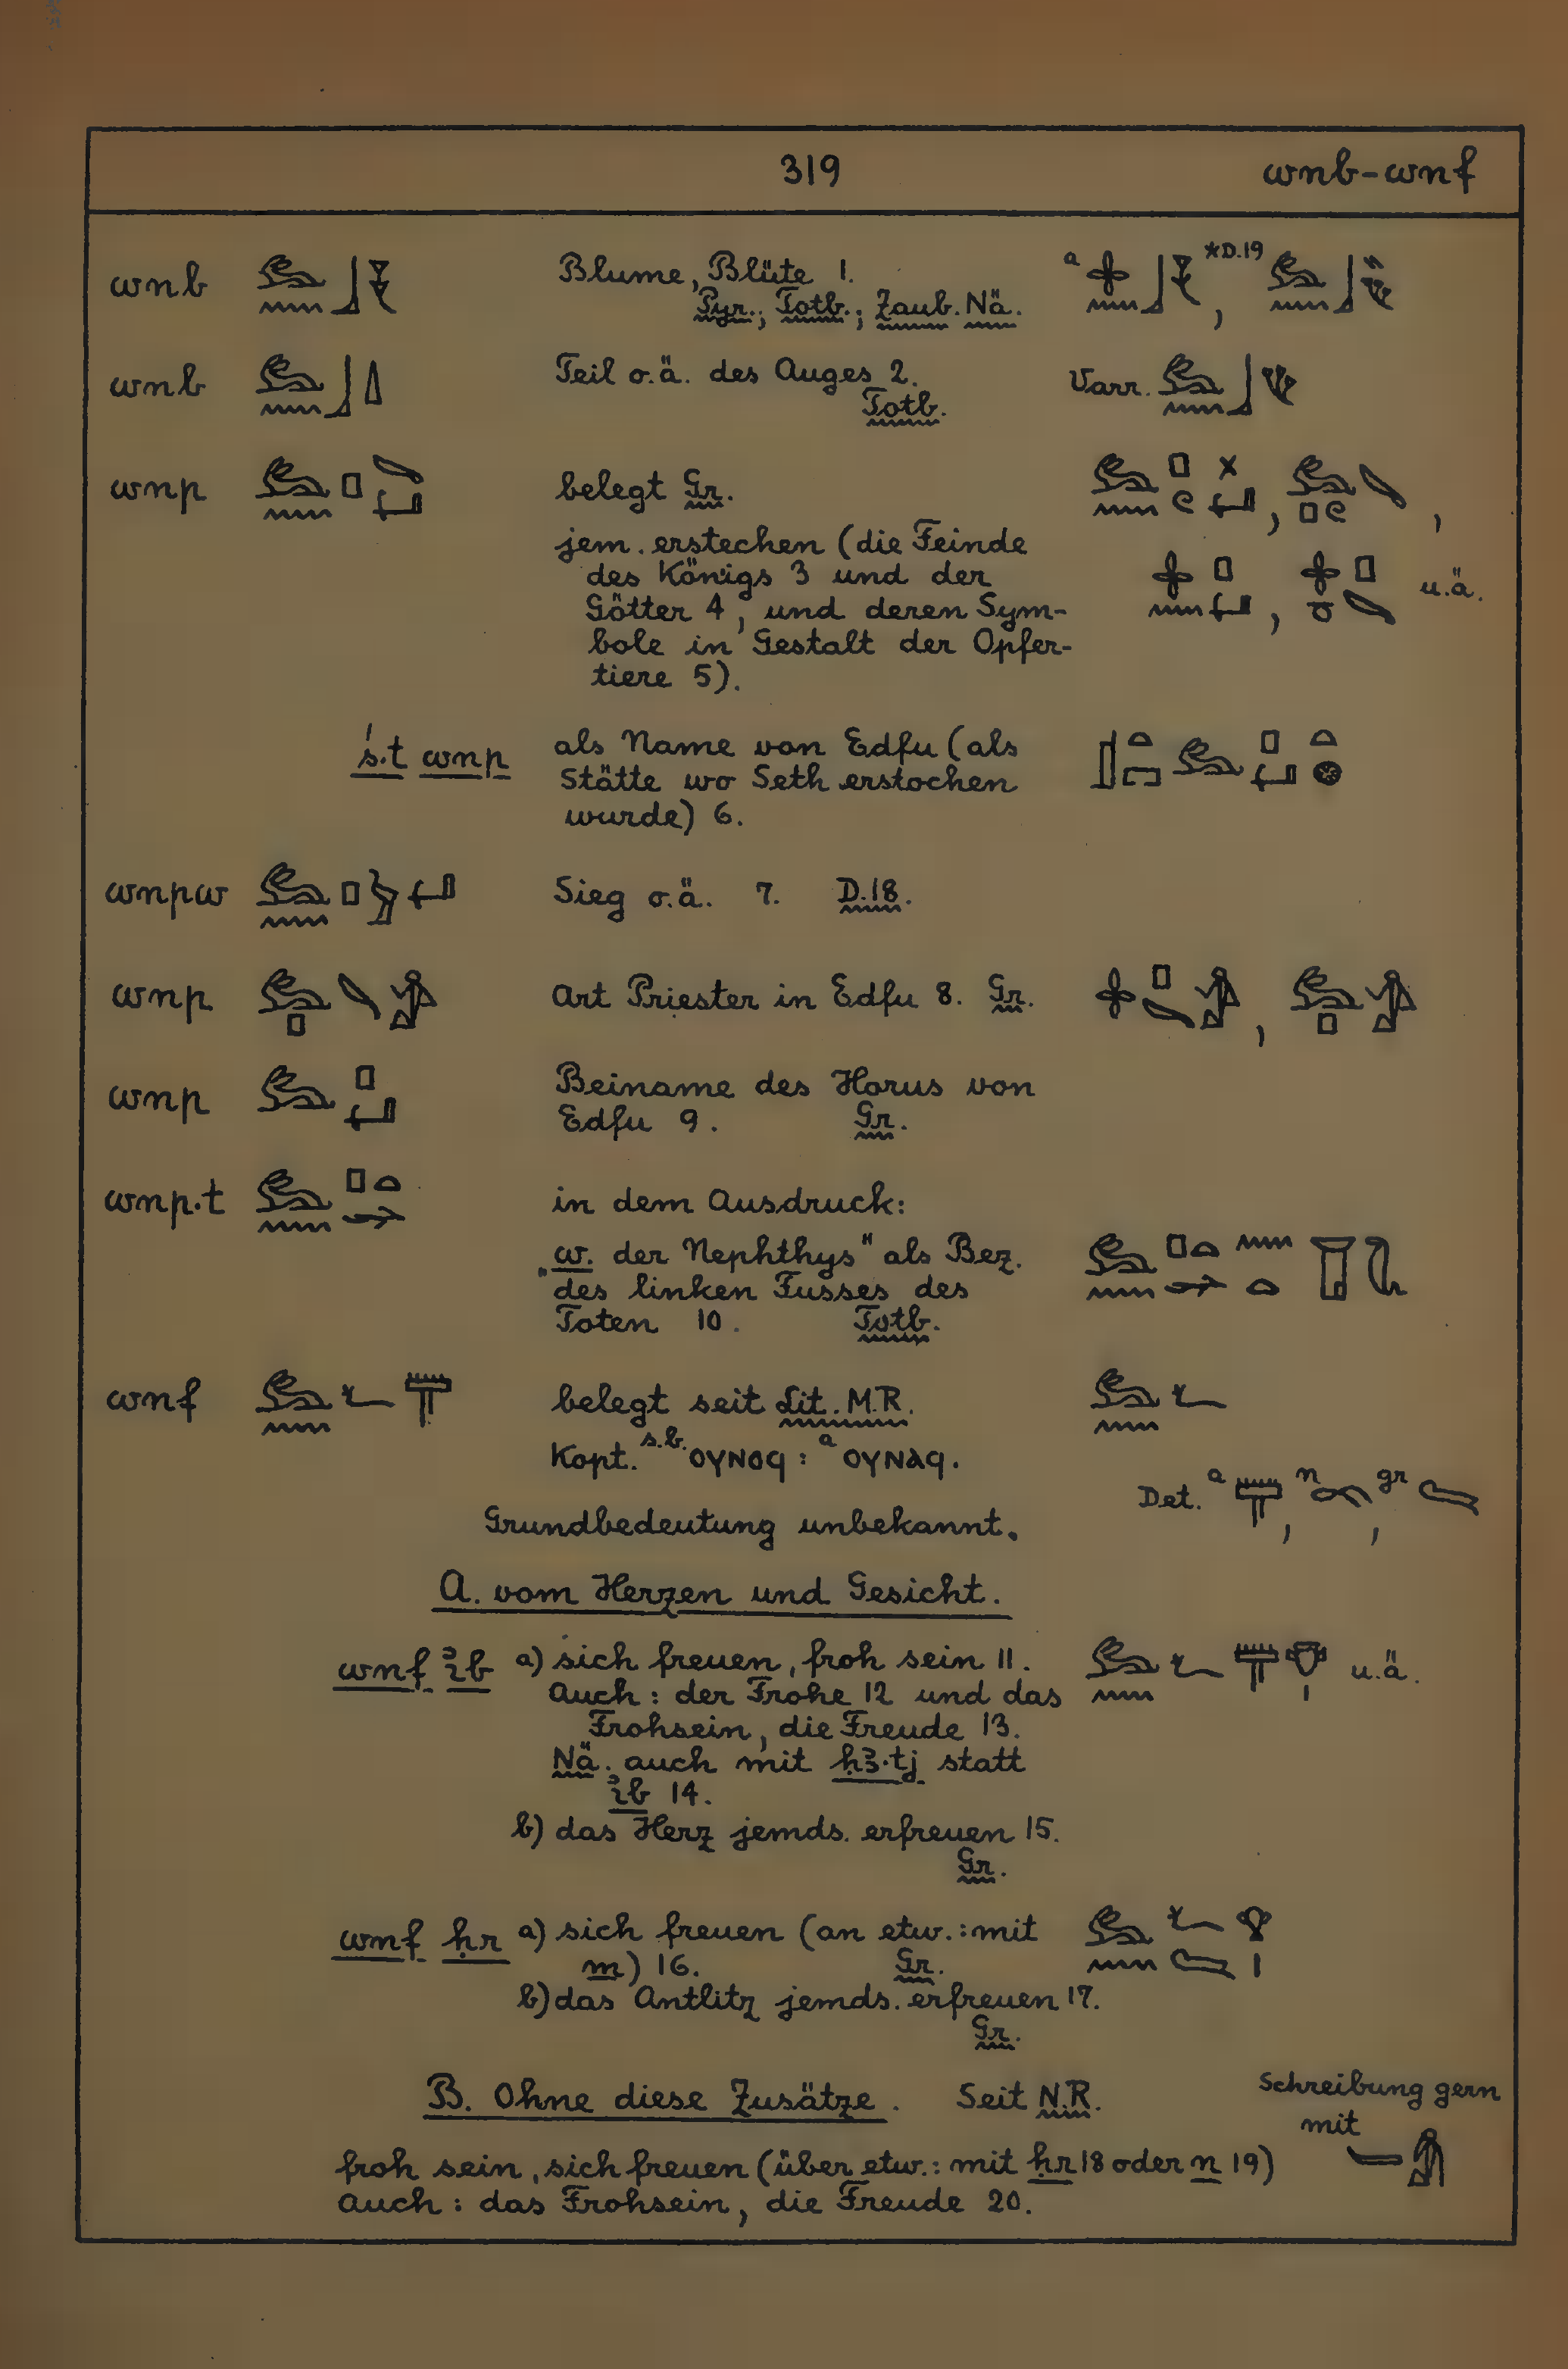 319 wnb-wnf
wnb Blume, Blüte 1. a *D.19 ,
Pyr.; Totb.; Zaub. Nä.
wnb Teil o.ä. des Auges 2. Varr.
Totb.
wnp belegt Gr. , ,
jem. erstechen (die Feinde
des Königs 3 und der , u.ä.
Götter 4, und deren Sym-
bole in Gestalt der Opfer-
tiere 5).
ś.t wnp als Name von Edfu (als
Stätte wo Seth erstochen
wurde) 6.
wnpw Sieg o.ä. 7. D.18.
wnp Art Priester in Edfu 8. Gr. ,
wnp Beiname des Horus von
Edfu 9. Gr.
wnp.t in dem Ausdruck:
„w. der Nephthys" als Bez.
des linken Fusses des
Toten 10. Totb.
wnf belegt seit Lit. M.R.
Kopt. s.b. ⲟⲩⲛⲟϥ : a ⲟⲩⲛⲁϥ.
Det. a , n , gr
Grundbedeutung unbekannt.
A. vom Herzen und Gesicht.
wnf ꜣib a) sich freuen, froh sein 11. u.ä.
Auch: der Frohe 12 und das
Frohsein, die Freude 13.
Nä. auch mit ḥꜣ.tj statt
ꜣib 14.
b) das Herz jemds. erfreuen 15.
Gr.
wnf ḥr a) sich freuen (an etw.: mit
m) 16. Gr.
b) das Antlitz jemds. erfreuen 17.
Gr.
B. Ohne diese Zusätze. Seit N.R. Schreibung gern
mit
froh sein, sich freuen (über etw.: mit ḥr 18 oder n 19)
Auch: das Frohsein, die Freude 20.